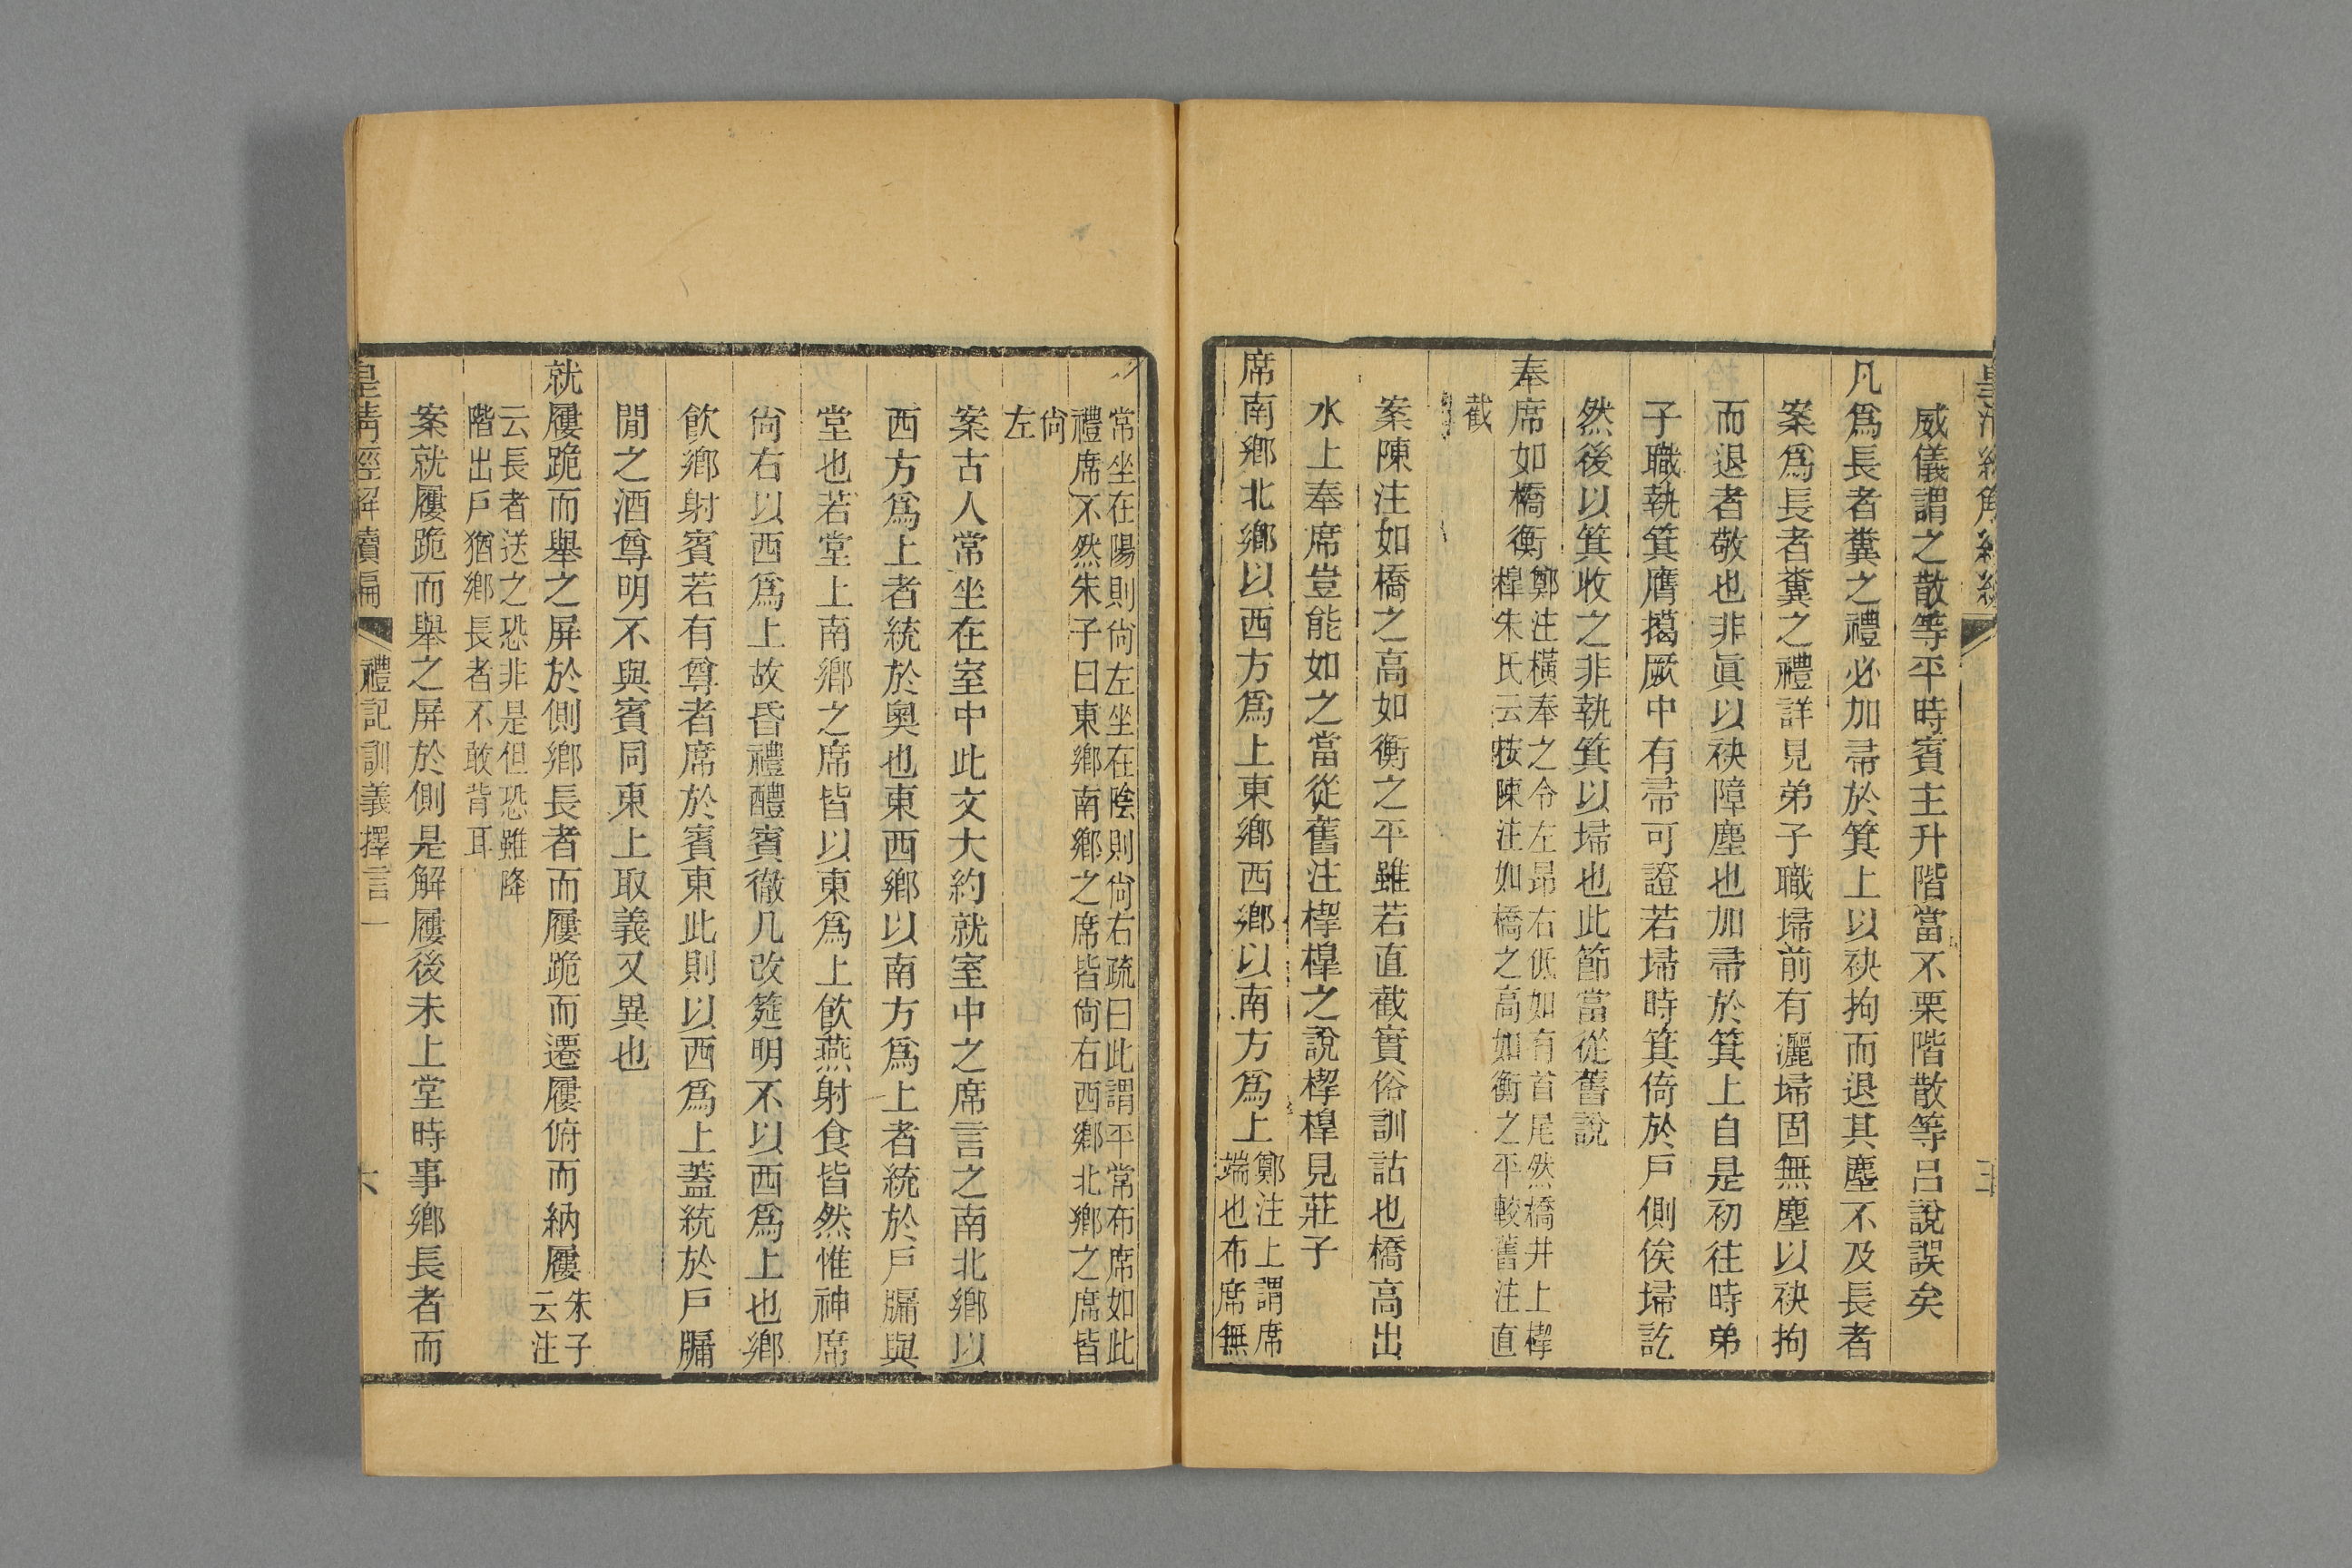 威儀謂之散等平時賓主升階當不栗階散等呂說誤矣
凡爲長者糞之禮必加帚於箕上以袂拘而退其塵不及長者
案爲長者糞之禮詳見弟子職埽前有灑埽固無塵以袂拘
而退者敬也非眞以袂障塵也加帚於箕上自是初往時弟
子職執箕膺擖厥中有帚可證若埽時箕倚於戶側俟埽訖
然後以箕收之非執箕以埽也此節當從舊說
奉席如橋衡鄭注橫奉之令左昂右低如有首尾然橋井上楔
楻朱氏云按陳注如橋之高如衡之平較舊注直
截
案陳注如橋之高如衡之平雖若直截實俗訓詁也橋高出
水上奉席豈能如之當從舊注楔楻之說楔楻見莊子
席南鄉北鄉以西方爲上東鄉西鄉以南方爲上鄭注上謂席
端也布席無
常坐在陽則尙左坐在陰則尙右疏曰此謂平常布席如此
禮席不然朱子曰東鄉南鄉之席皆尙右西鄉北鄉之席皆
尙
左
案古人常坐在室中此文大約就室中之席言之南北鄉以
西方爲上者統於奧也東西鄉以南方爲上者統於戶牖與
堂也若堂上南鄉之席皆以東爲上飮燕射食皆然惟神席
尙右以西爲上故昏禮醴賓徹几改筵明不以西爲上也鄉
飮鄉射賓若有尊者席於賓東此則以西爲上蓋統於戶牖
閒之酒尊明不與賓同東上取義又異也
就屨跪而舉之屛於側鄉長者而屨跪而遷屨俯而納屨朱子
云注
云長者送之恐非是但恐雖降
階出戶猶鄉長者不敢背耳
案就屨跪而舉之屛於側是解屨後未上堂時事鄉長者而
皇淸經解續編
禮記訓義擇言一
六